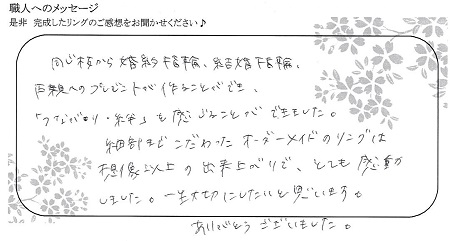 職人へのメッセージ
是非 完成したリングのご感想をお聞かせください♪
同じ枝から婚約指輪、結婚指輪、
両親へのプレゼントが作ることができ、
「つながり・絆」を感じることができました。
細部までこだわったオーダーメイドのリングは
想像以上の出来上がりで、とても感動
しました。一生大切にしたいと思います。
ありがとうございました。